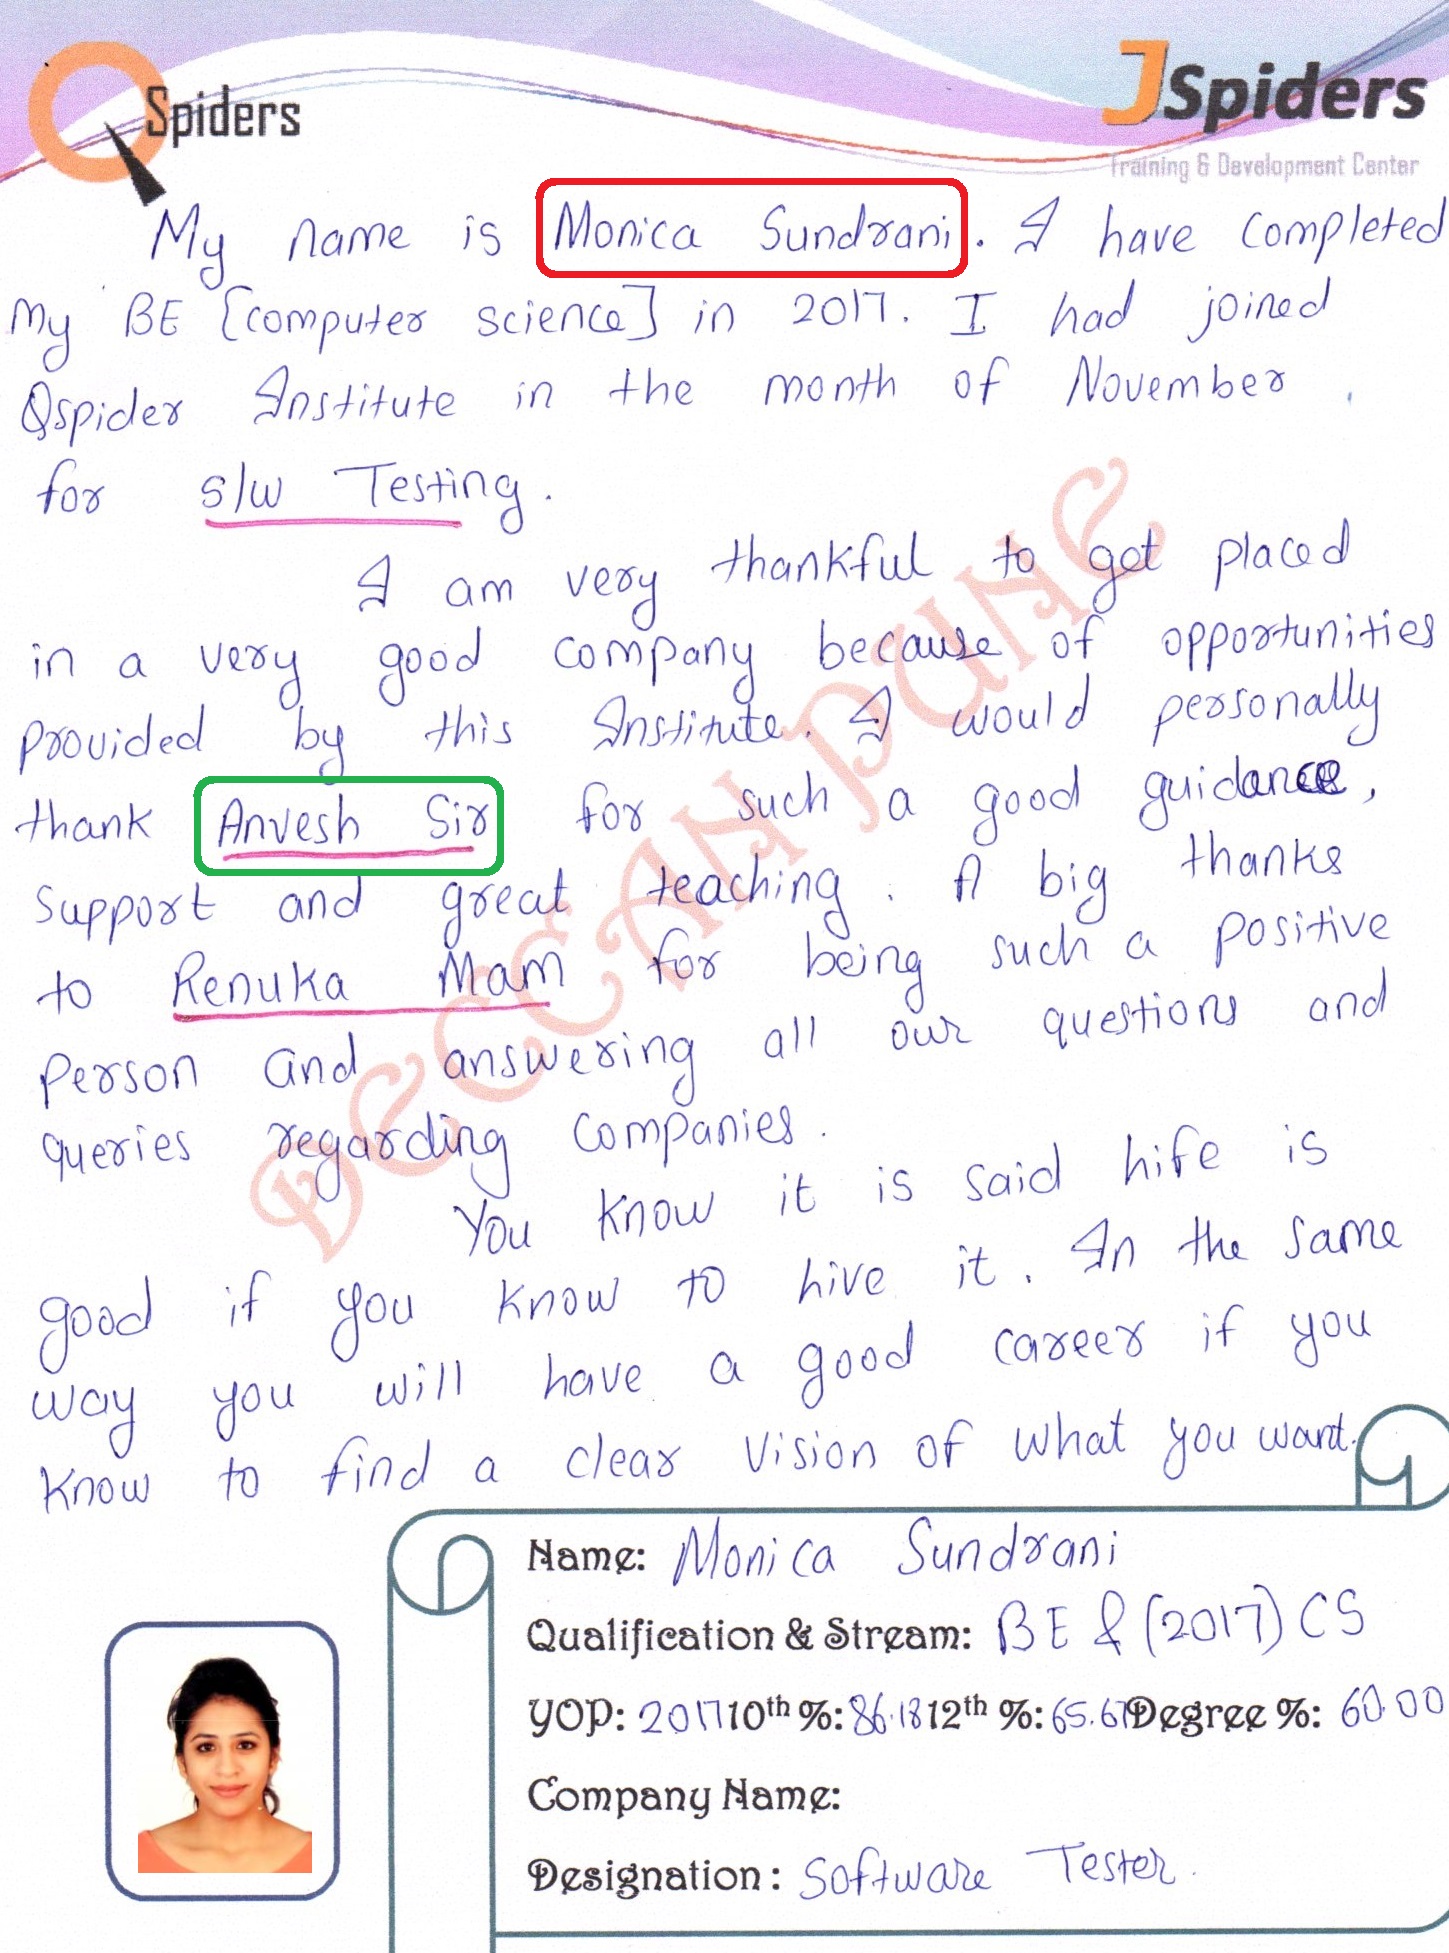 QSpiders
JSpiders
Training & Development Center
My name is Monica Sundrani. I have completed
my BE [computer science] in 2017. I had joined
Qspider Institute in the month of November
for s/w Testing.
I am very thankful to get placed
in a very good company because of opportunities
provided by this Institute. I would personally
thank Anvesh Sir for such a good guidance,
support and great teaching. A big thanks
to Renuka Mam for being such a positive
person and answering all our questions and
queries regarding companies.
You know it is said life is
good if you know to live it. In the same
way you will have a good career if you
know to find a clear vision of what you want.
DECCAN PUNE
Name: Monica Sundrani
Qualification & Stream: BE & (2017) CS
YOP: 2017 10th %: 86.18 12th %: 65.67 Degree %: 60.00
Company Name:
Designation: Software Tester.